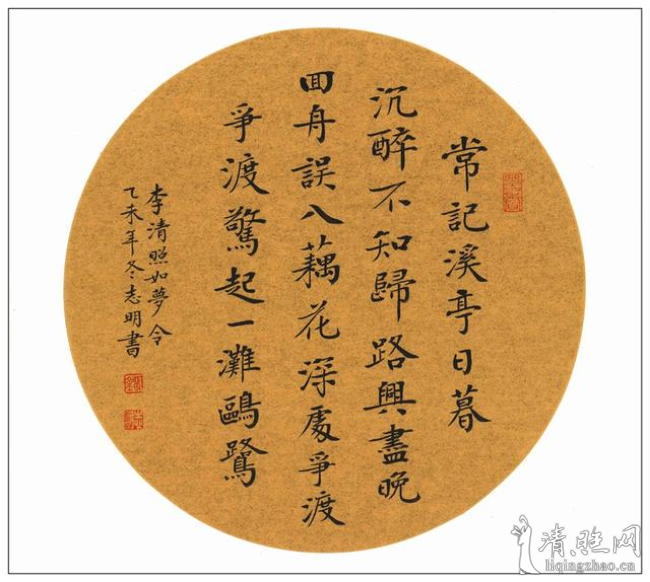 常記溪亭日暮
沉醉不知歸路興盡晚
回舟誤入藕花深處爭渡
爭渡驚起一灘鷗鷺
李清照如夢令
乙未年冬志明書
清照网
liqingzhao.cn